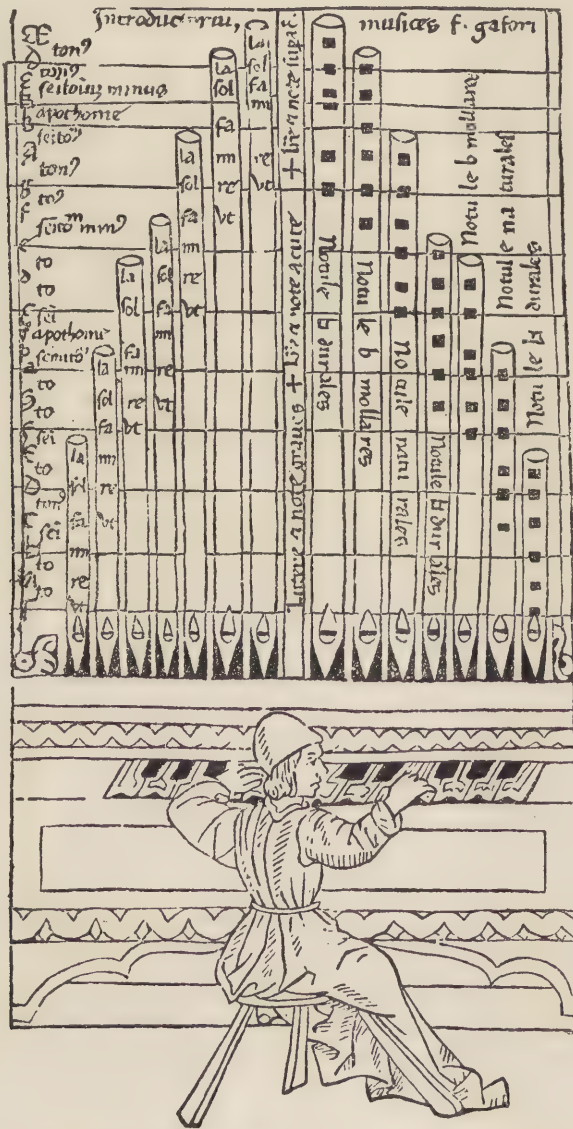 Introductoriu, musices f. gafori
tonꝰ
tonꝰ
minus
apothome
seitoꝰ
tonꝰ
toꝰ
to
to
sei
apothome
to
to
sei
to
tonꝰ
sei
to
to
la sol fa mi re vt
la sol fa mi re vt
la sol fa mi re vt
la sol fa mi re vt
la sol fa mi re vt
la sol fa mi re vt
la sol fa mi re vt
note graues + note acute +
Notule ♮ durales
Notule b mollares
Notule naturales
Notule ♮ durales
Notule b mollares
Notule naturales
Notule ♮ durales